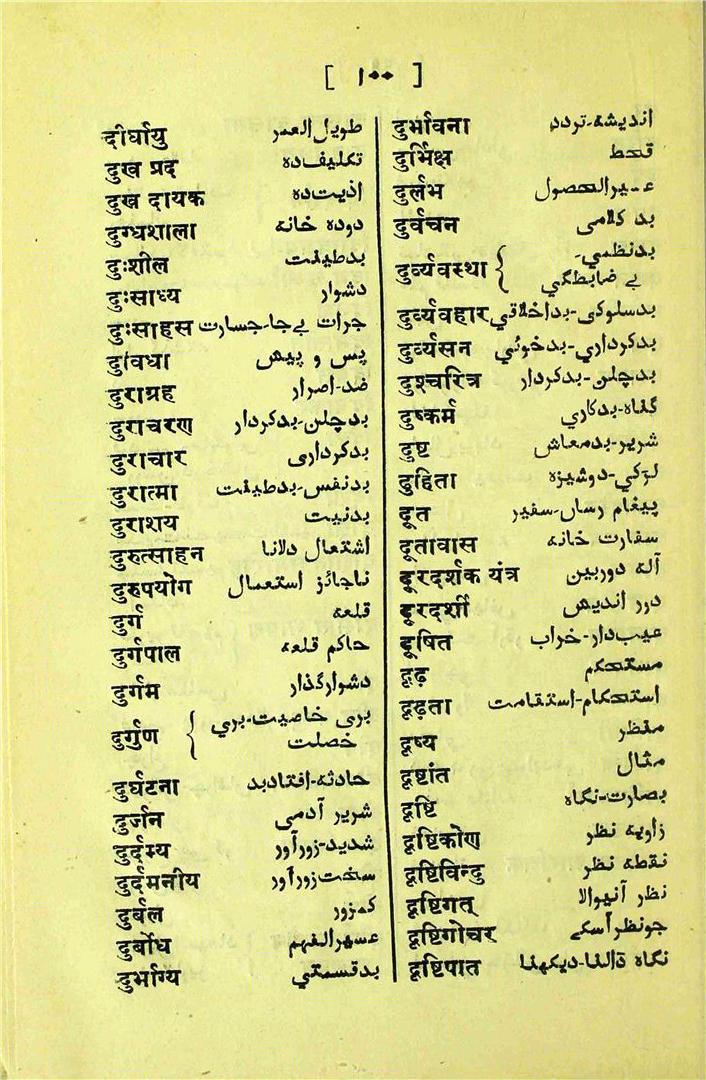 [ ١٠٠ ]
दीर्घायु طویل العمر
दुख प्रद تکلیف‌ده
दुख दायक اذیت‌ده
दुग्धशाला دوده خانه
दुःशील بدطینت
दुःसाध्य دشوار
दुःसाहस جرات بے‌جا-جسارت
दुविधा پس و پیش
दुराग्रह ضد-اصرار
दुराचरण بدچلن-بدکردار
दुराचार بدکرداری
दुरात्मा بدنفس-بدطینت
दुराशय بدنیت
दुरुत्साहन اشتعال دلانا
दुरुपयोग ناجائز استعمال
दुर्ग قلعه
दुर्गपाल حاکم قلعه
दुर्गम دشوارگذار
दुर्गुण { بری خاصیت-بري
خصلت
दुर्घटना حادثه-افتادبد
दुर्जन شریر آدمی
दुर्दम्य شدید-زورآور
दुर्दमनीय سخت زورآور
दुर्बल کمزور
दुर्बोध عسیرالفهم
दुर्भाग्य بدقسمتي
दुर्भावना اندیشه-تردد
दुर्भिक्ष قحط
दुर्लभ عسیرالحصول
दुर्वचन بد کلامی
दुर्व्यवस्था { بدنظمي-
بے ضابطگي
दुर्व्यवहार بدسلوکی-بداخلاقي
दुर्व्यसन بدکرداري-بدخوئي
दुश्चरित्र بدچلن-بدکردار
दुष्कर्म گناه-بدکاري
दुष्ट شریر-بدمعاش
दुहिता لڑکي-دوشیزه
दूत پیغام رساں-سفیر
दूतावास سفارت خانه
दूरदर्शक यंत्र آله دوربین
दूरदर्शी دور اندیش
दूषित عیب‌دار-خراب
दृढ़ مستحکم
दृढ़ता استحکام-استقامت
दृष्य منظر
दृष्टांत مثال
दृष्टि بصارت-نگاه
दृष्टिकोण زاویه نظر
दृष्टिविन्दु نقطه نظر
दृष्टिगत् نظر آنیوالا
दृष्टिगोचर جونظر آسکے
दृष्टिपात نگاه ڈالنا-دیکھنا